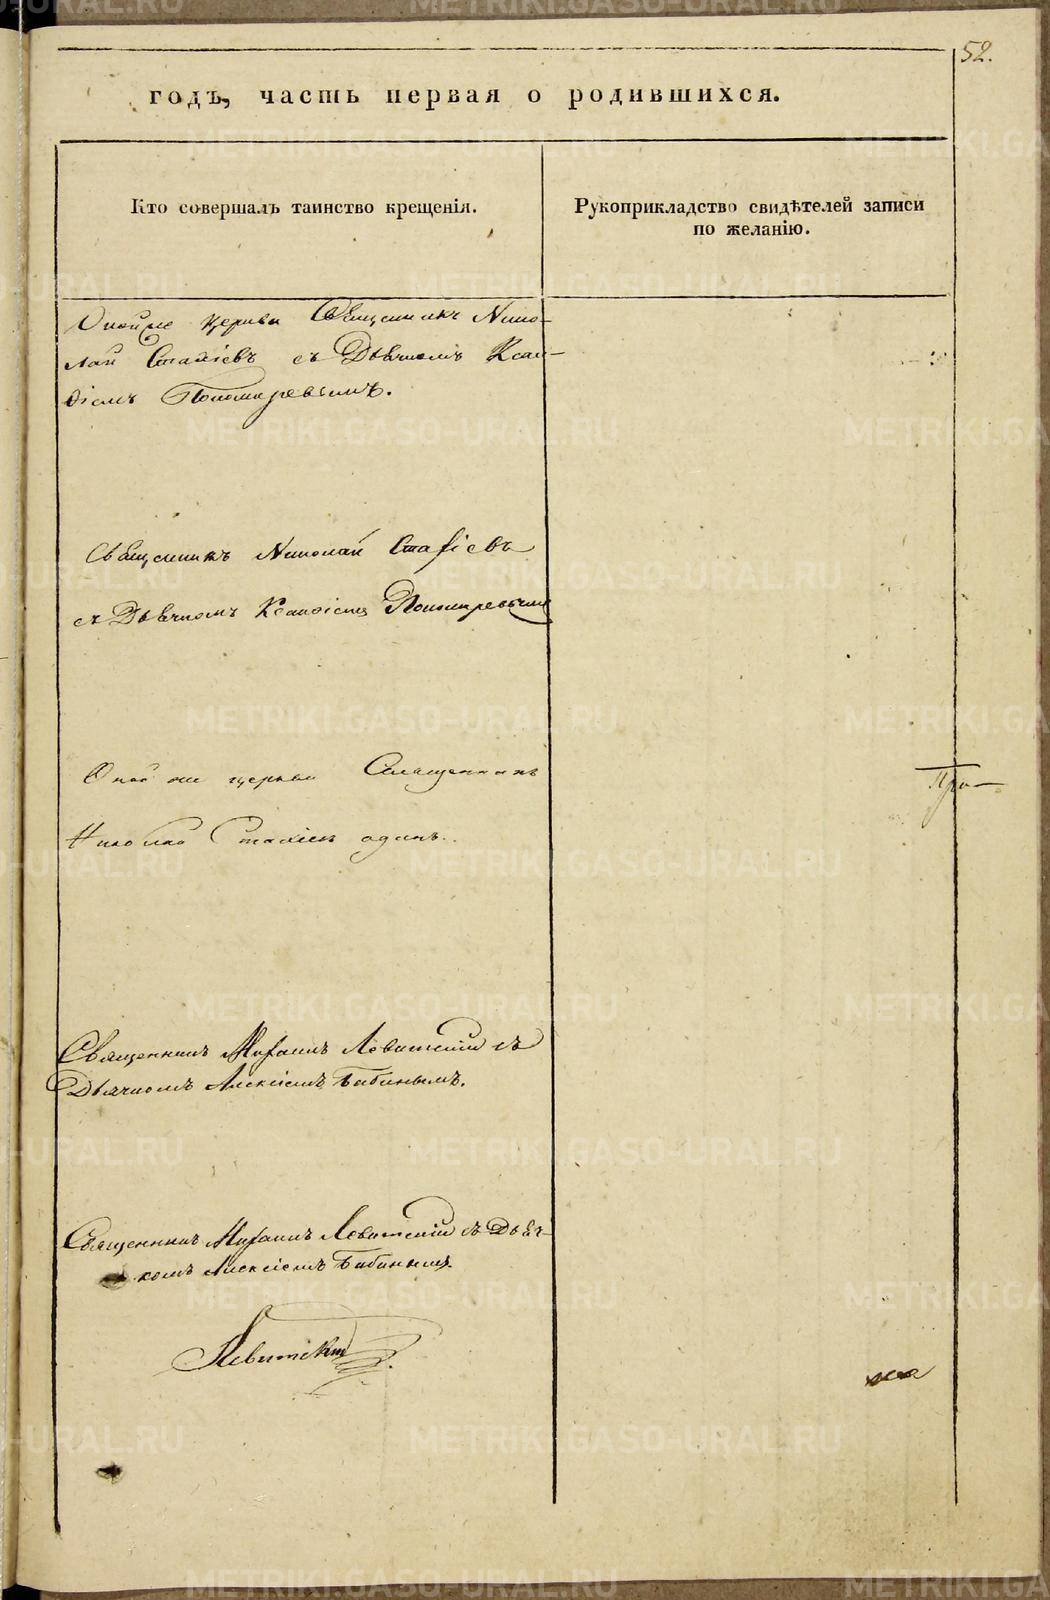 52.
годъ, часть первая о родившихся.
Кто совершалъ таинство крещенія.
Рукоприкладство свидѣтелей записи
по желанію.
Оной же церкви Священникъ Нико-
лай Стахіевъ съ Дьячкомъ Ксан-
діемъ Пономаревымъ.
Священникъ Николай Стахіевъ
съ Дьячкомъ Пономаревымъ
Оной же церкви Священникъ
Николай Стахіевъ одинъ.
Священникъ Михаилъ Левитскій съ
Дьячкомъ Алексіемъ Бабинымъ.
Священникъ Михаилъ Левитскій съ Дьяч-
комъ Алексіемъ Бабинымъ.
Левитскій
METRIKI.GASO-URAL.RU